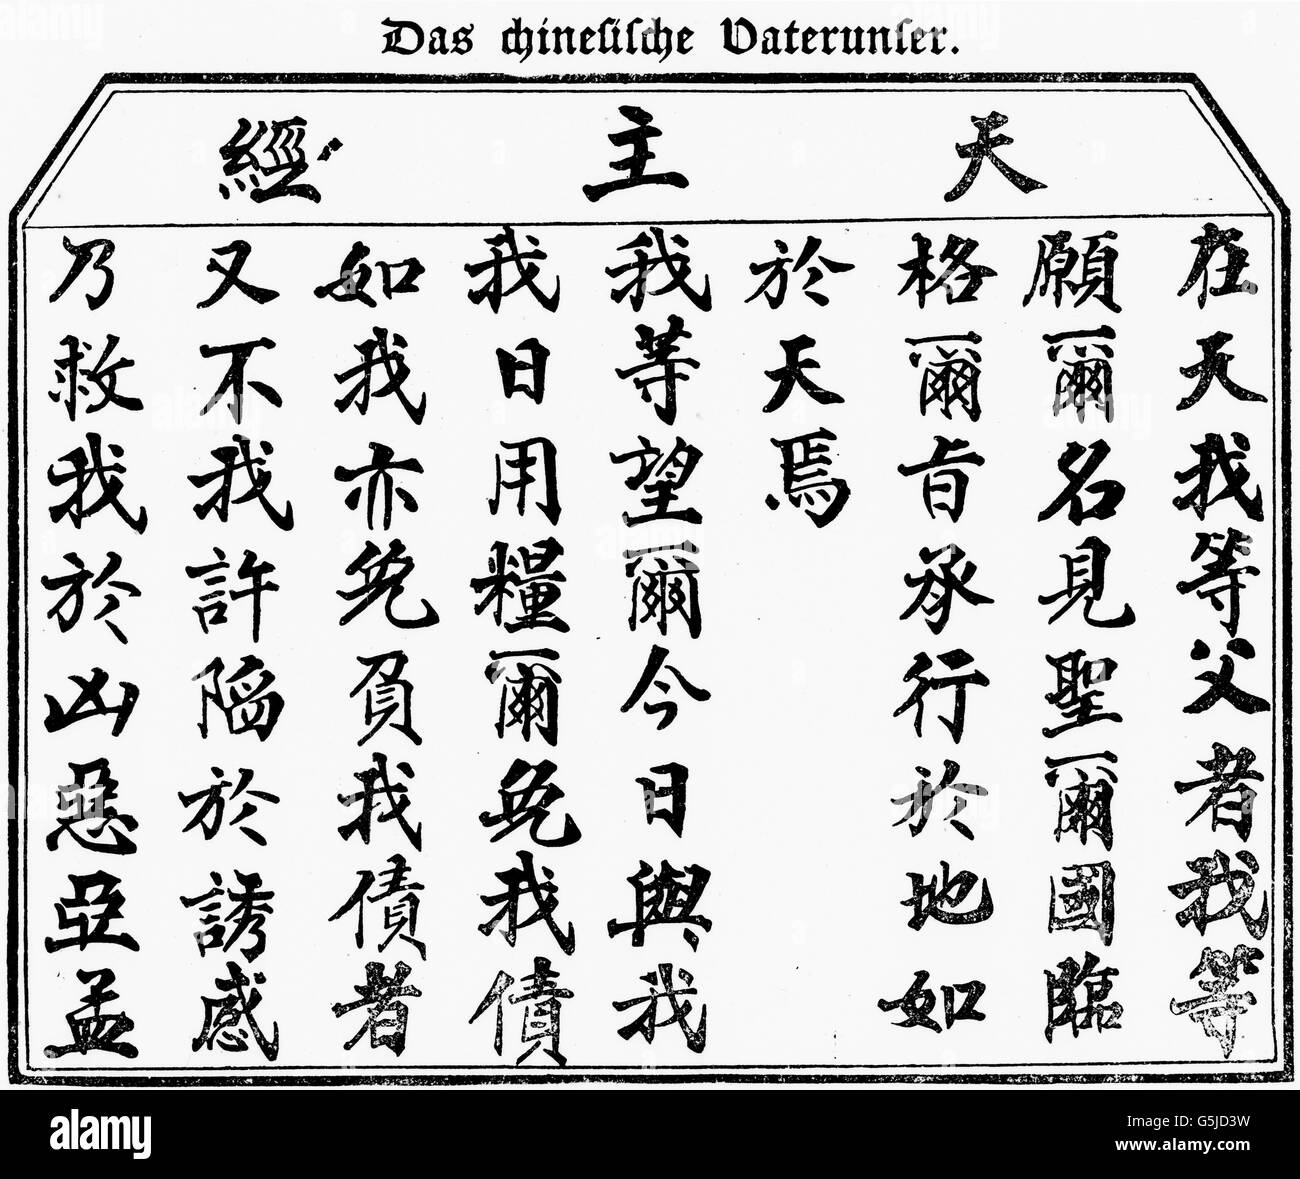 Das chinesische Vaterunser.
天主經
在天我等父者我等
願爾名見聖爾國臨
格爾旨承行於地如
於天焉
我等望爾今日與我
我日用糧爾免我債
如我亦免負我債者
又不我許陷於誘感
乃救我於凶惡亞孟
alamy
G5JD3W
www.alamy.com